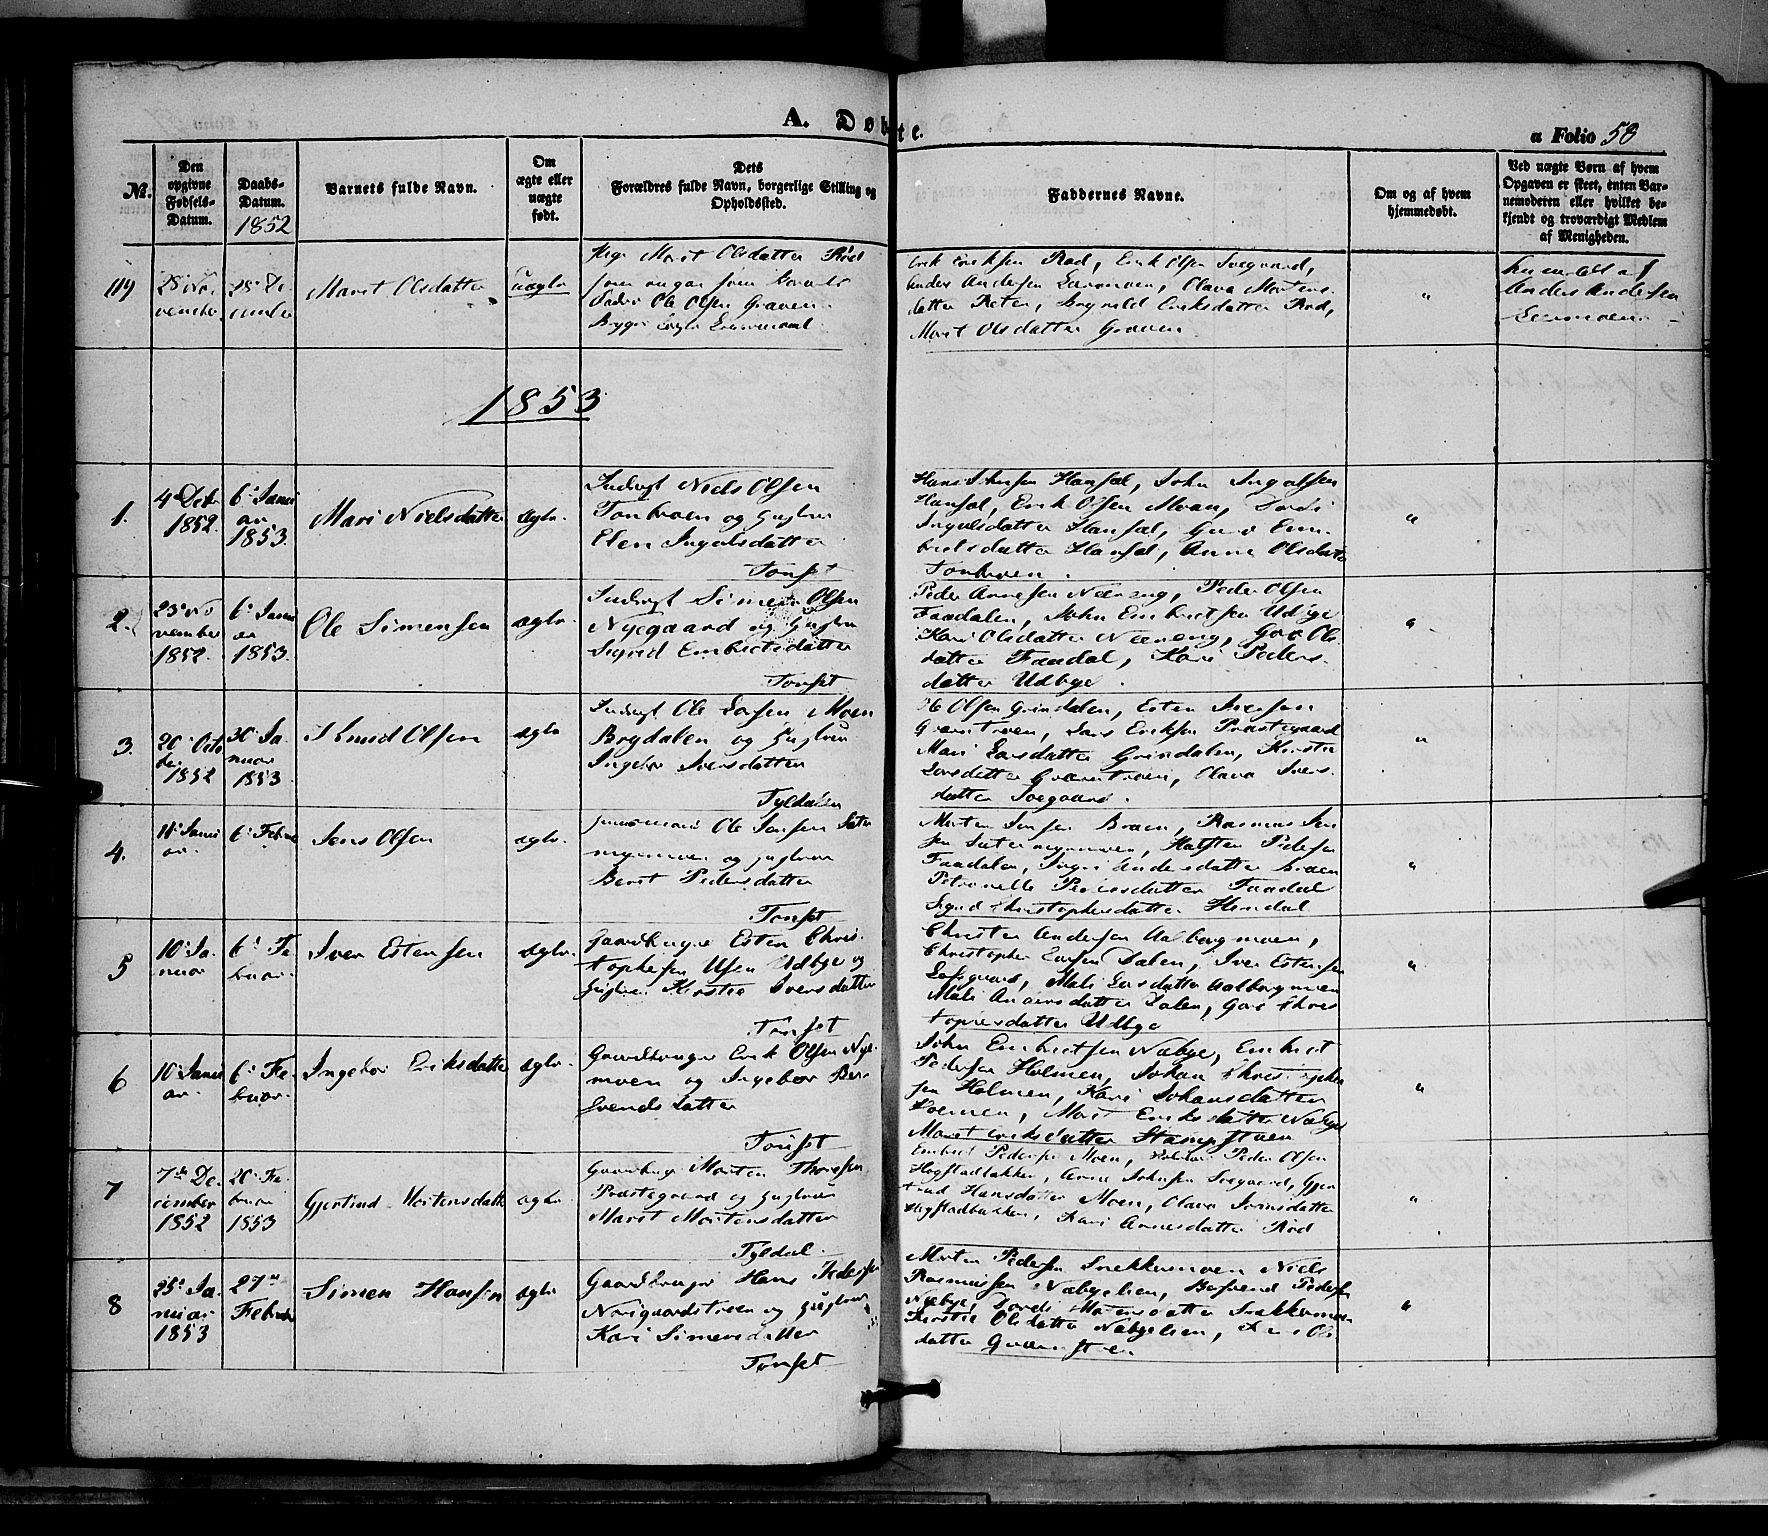 A. Døbte.
a Folio 58
No.
Den opgivne Fødsels-Datum.
Daabs-Datum.
1852
Barnets fulde Navn.
Om ægte eller uægte født.
Dets Forældres fulde Navn, borgerlige Stilling og Opholdssted.
Faddernes Navne.
Om og af hvem hjemmedøbt.
Ved uægte Børn af hvem Opgaven er skeet, enten Barnemoderen eller hvilket bekjendt og troværdigt Medlem af Menigheden.
119
28 No-
vember
28 De-
cember
Marit Olsdatter
uægte
Pige Marit Olsdatter Röd
som angav som Barne-
fader Ole Olsen Graven
Erik Eriksen Rød, Erik Olsen Svegaard,
Anders Andersen, Olava Mortens-
datter, Eriksdatter Rød,
Marit Olsdatter Graven
"
Anders Andersen
1853
1.
4de Dcb.
1852.
6te Janu
ar
1853.
Mari Nielsdatter
ægte.
Indrgt Niels Olsen
Tonhoen og Hustru
Elen Ingulsdatter
Tønset
Hansæl, John
Hansæl, Erik Olsen Moan,
Ingulsdatter Hansæl, Guro Em-
bretsdatter Hansæl, Anne Olsdatter
Tonhoen.
"
2.
23de No
vember
1852.
6te Janu
ar
1853.
Ole Simensen
ægte.
Indrgt Simen Olsen
Nyegaard og Hustru
Sigrid Embretsdatter
Tønset
Peder Arnesen Næreng, Peder Olsen
Faadalen, John Embretsen Udbye
Kari Olsdatter Næreng, Goro Ols
datter Faadal, Kari Peders-
datter Udbye.
"
3.
20de Octo
ber
1852
30te Ja
nuar
1853
Knud Olsen
ægte
Indrgt Ole Larsen Moen
Brydalen og Hustru
Ingebor Iversdatter
Tyldalen
Ole Olsen Grindalen, Esten Iversen
Lars Eriksen Præstegaard
Mari Larsdatter Grindalen, Kirstie
Larsdatter, Olava Ivers-
datter Svegaard.
"
4.
11te Janu
ar.
6te Februar
Jens Olsen
ægte.
Ole Jensen Sæter
nymoen og Hustru
Berit Pedersdatter
Tønset
Morten Jensen Braen, Rasmus Jen
sen Sæternymoen, Halsten Pedersen
Faadalen, Ingri Andersdatter Braen
Petronelle Pedersdatter Faadal
Sigrid Christophersdatter
"
5
10de Ja
nuar
6te Fe
bruar.
Iver Estensen
ægte.
Gaardbruger Esten Chris-
tophersen Udbye og
Hustru Kirstie Iversdatter
Tønset
Christen Andersen Aalborgmoen,
Christopher Larsen Dalen, Iver Estensen
Mali Larsdatter Aalborgmoen
Mali Andersdatter Dalen, Goro Chris
tophersdatter Udbye
"
6
10de Janu
ar.
6te Fe
bruar.
Ingebor Eriksdatter
ægte.
Gaardbruger Erik Olsen Nye-
moen og Ingebor Ber-
svendsdatter
Tønset
John Embretsen Næbye, Embret
Pedersen Holmen, Johan Christophers
sen Holmen, Kari Johansdatter
Moemoen, Marit Eriksdatter Næbye
Marit Eriksdatter Stampstuen
"
7
7de De
cember
1852
20de Fe
bruar
1853
Gjertrud Mortensdatter
ægte.
Gaardbruger Morten Thoresen
Præstegaard og Hustru
Marit Mortensdatter
Tyldal.
Embret Pedersen Moen, Peder Olsen
Hogstadbakken, Arne Johnsen Svegaard, Gjer
trud Hansdatter Moen, Olava Simensdatter
Hogstadbakken, Kari Arnesdatter Rød
"
8
25de Ja
nuar
1853
27de
Februar
Simen Hansen
ægte
Gaardbruger Hans Pedersen
Norigaardstroen og Hustru
Kari Simensdatter
Tønset
Morten Pedersen Snekkermoen Niels
Rasmussen Næbyelien, Bersvend Pedersen
Næbye, Dordi Mortensdatter Snekkermoen
Kirstie Olsdatter Næbyelien, Ols
datter
"